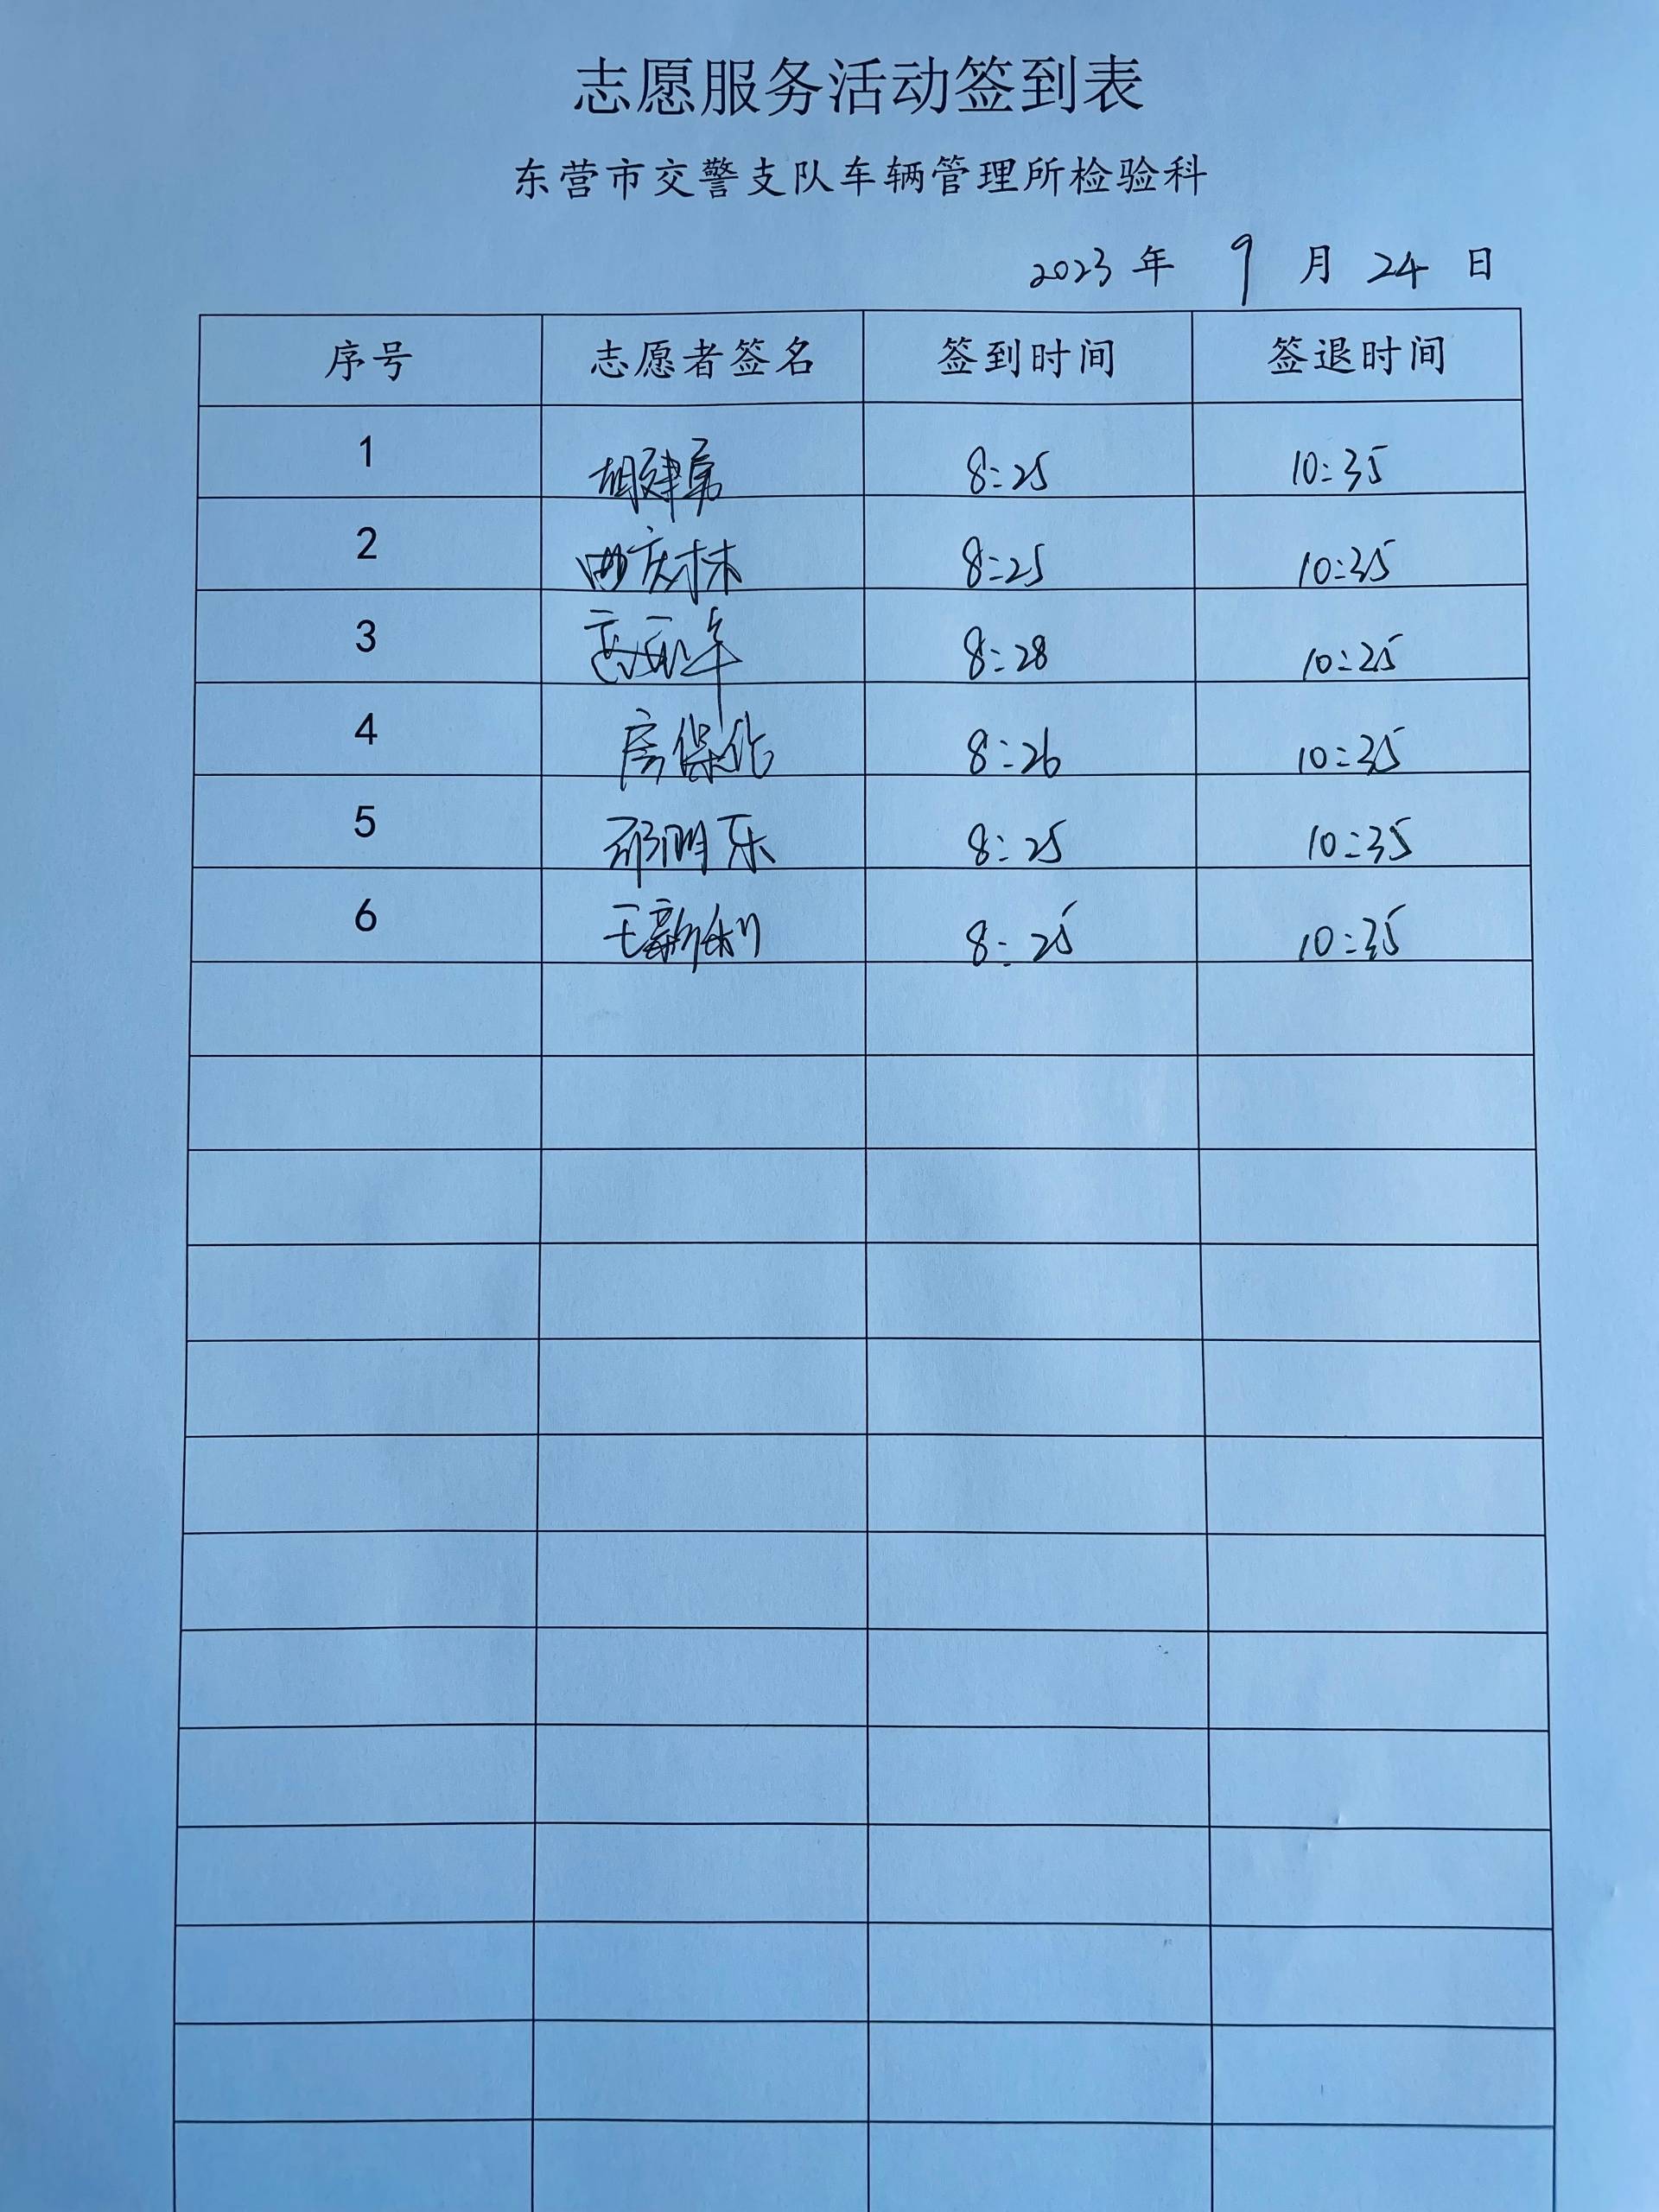 志愿服务活动签到表
东营市交警支队车辆管理所检验科
2023 年 9 月 24 日
序号 志愿者签名 签到时间 签退时间
1 胡建勇 8:25 10:35
2 庆林 8:25 10:35
3 8:28 10:25
4 房保化 8:26 10:35
5 邵明乐 8:25 10:35
6 王新利 8:25 10:35